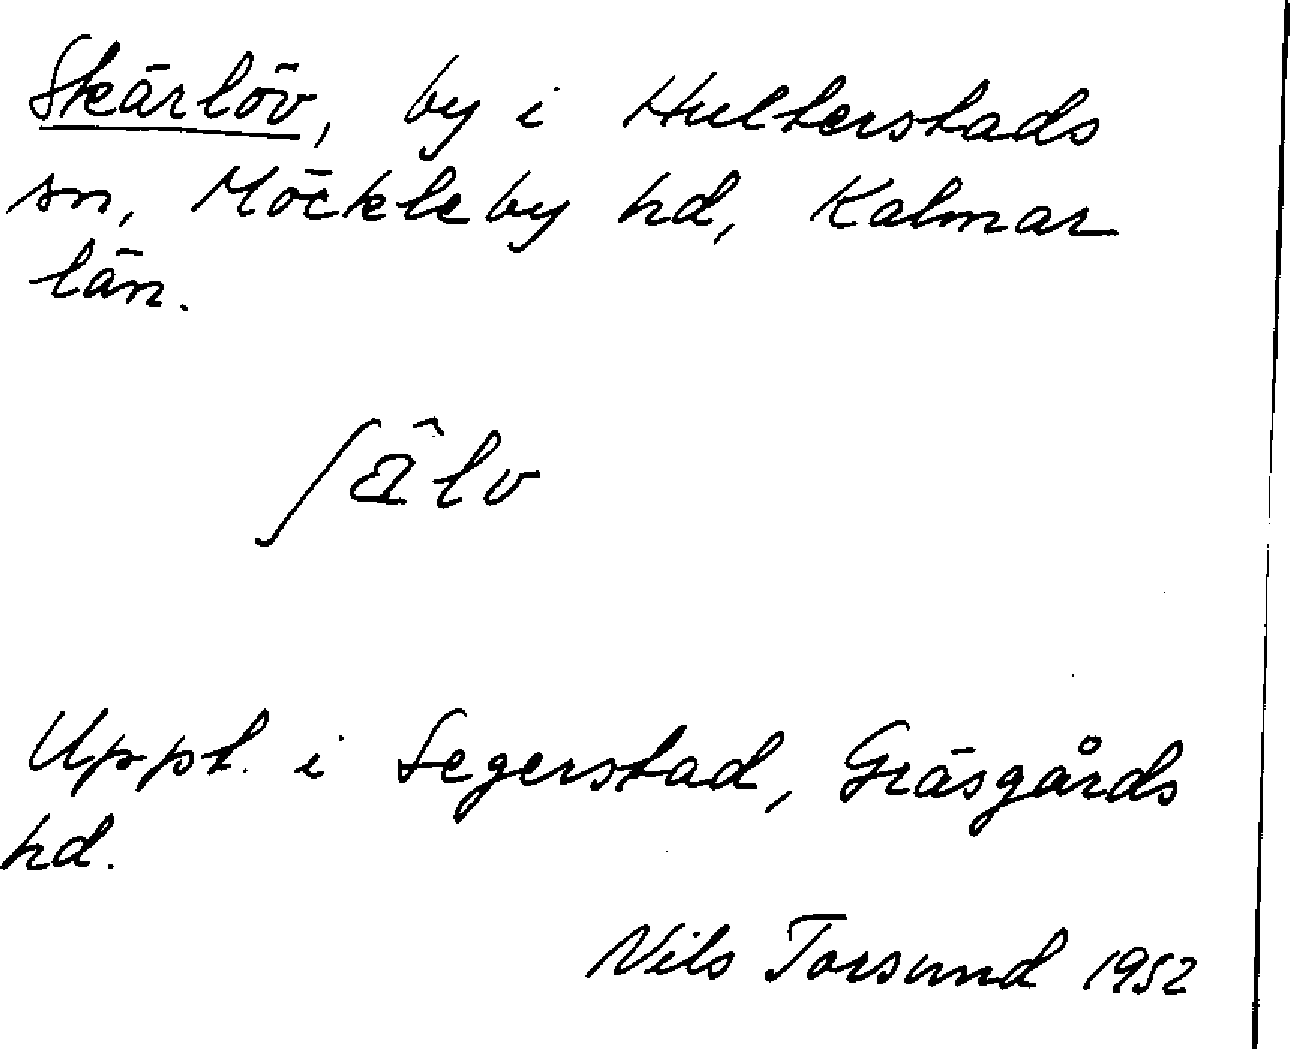 Skärlöv, by i Hulterstads
sn, Möckleby hd, Kalmar
län.
ʃa᷈lv
Uppt. i Segerstad, Gräsgårds
hd.
Nils Torsund 1952